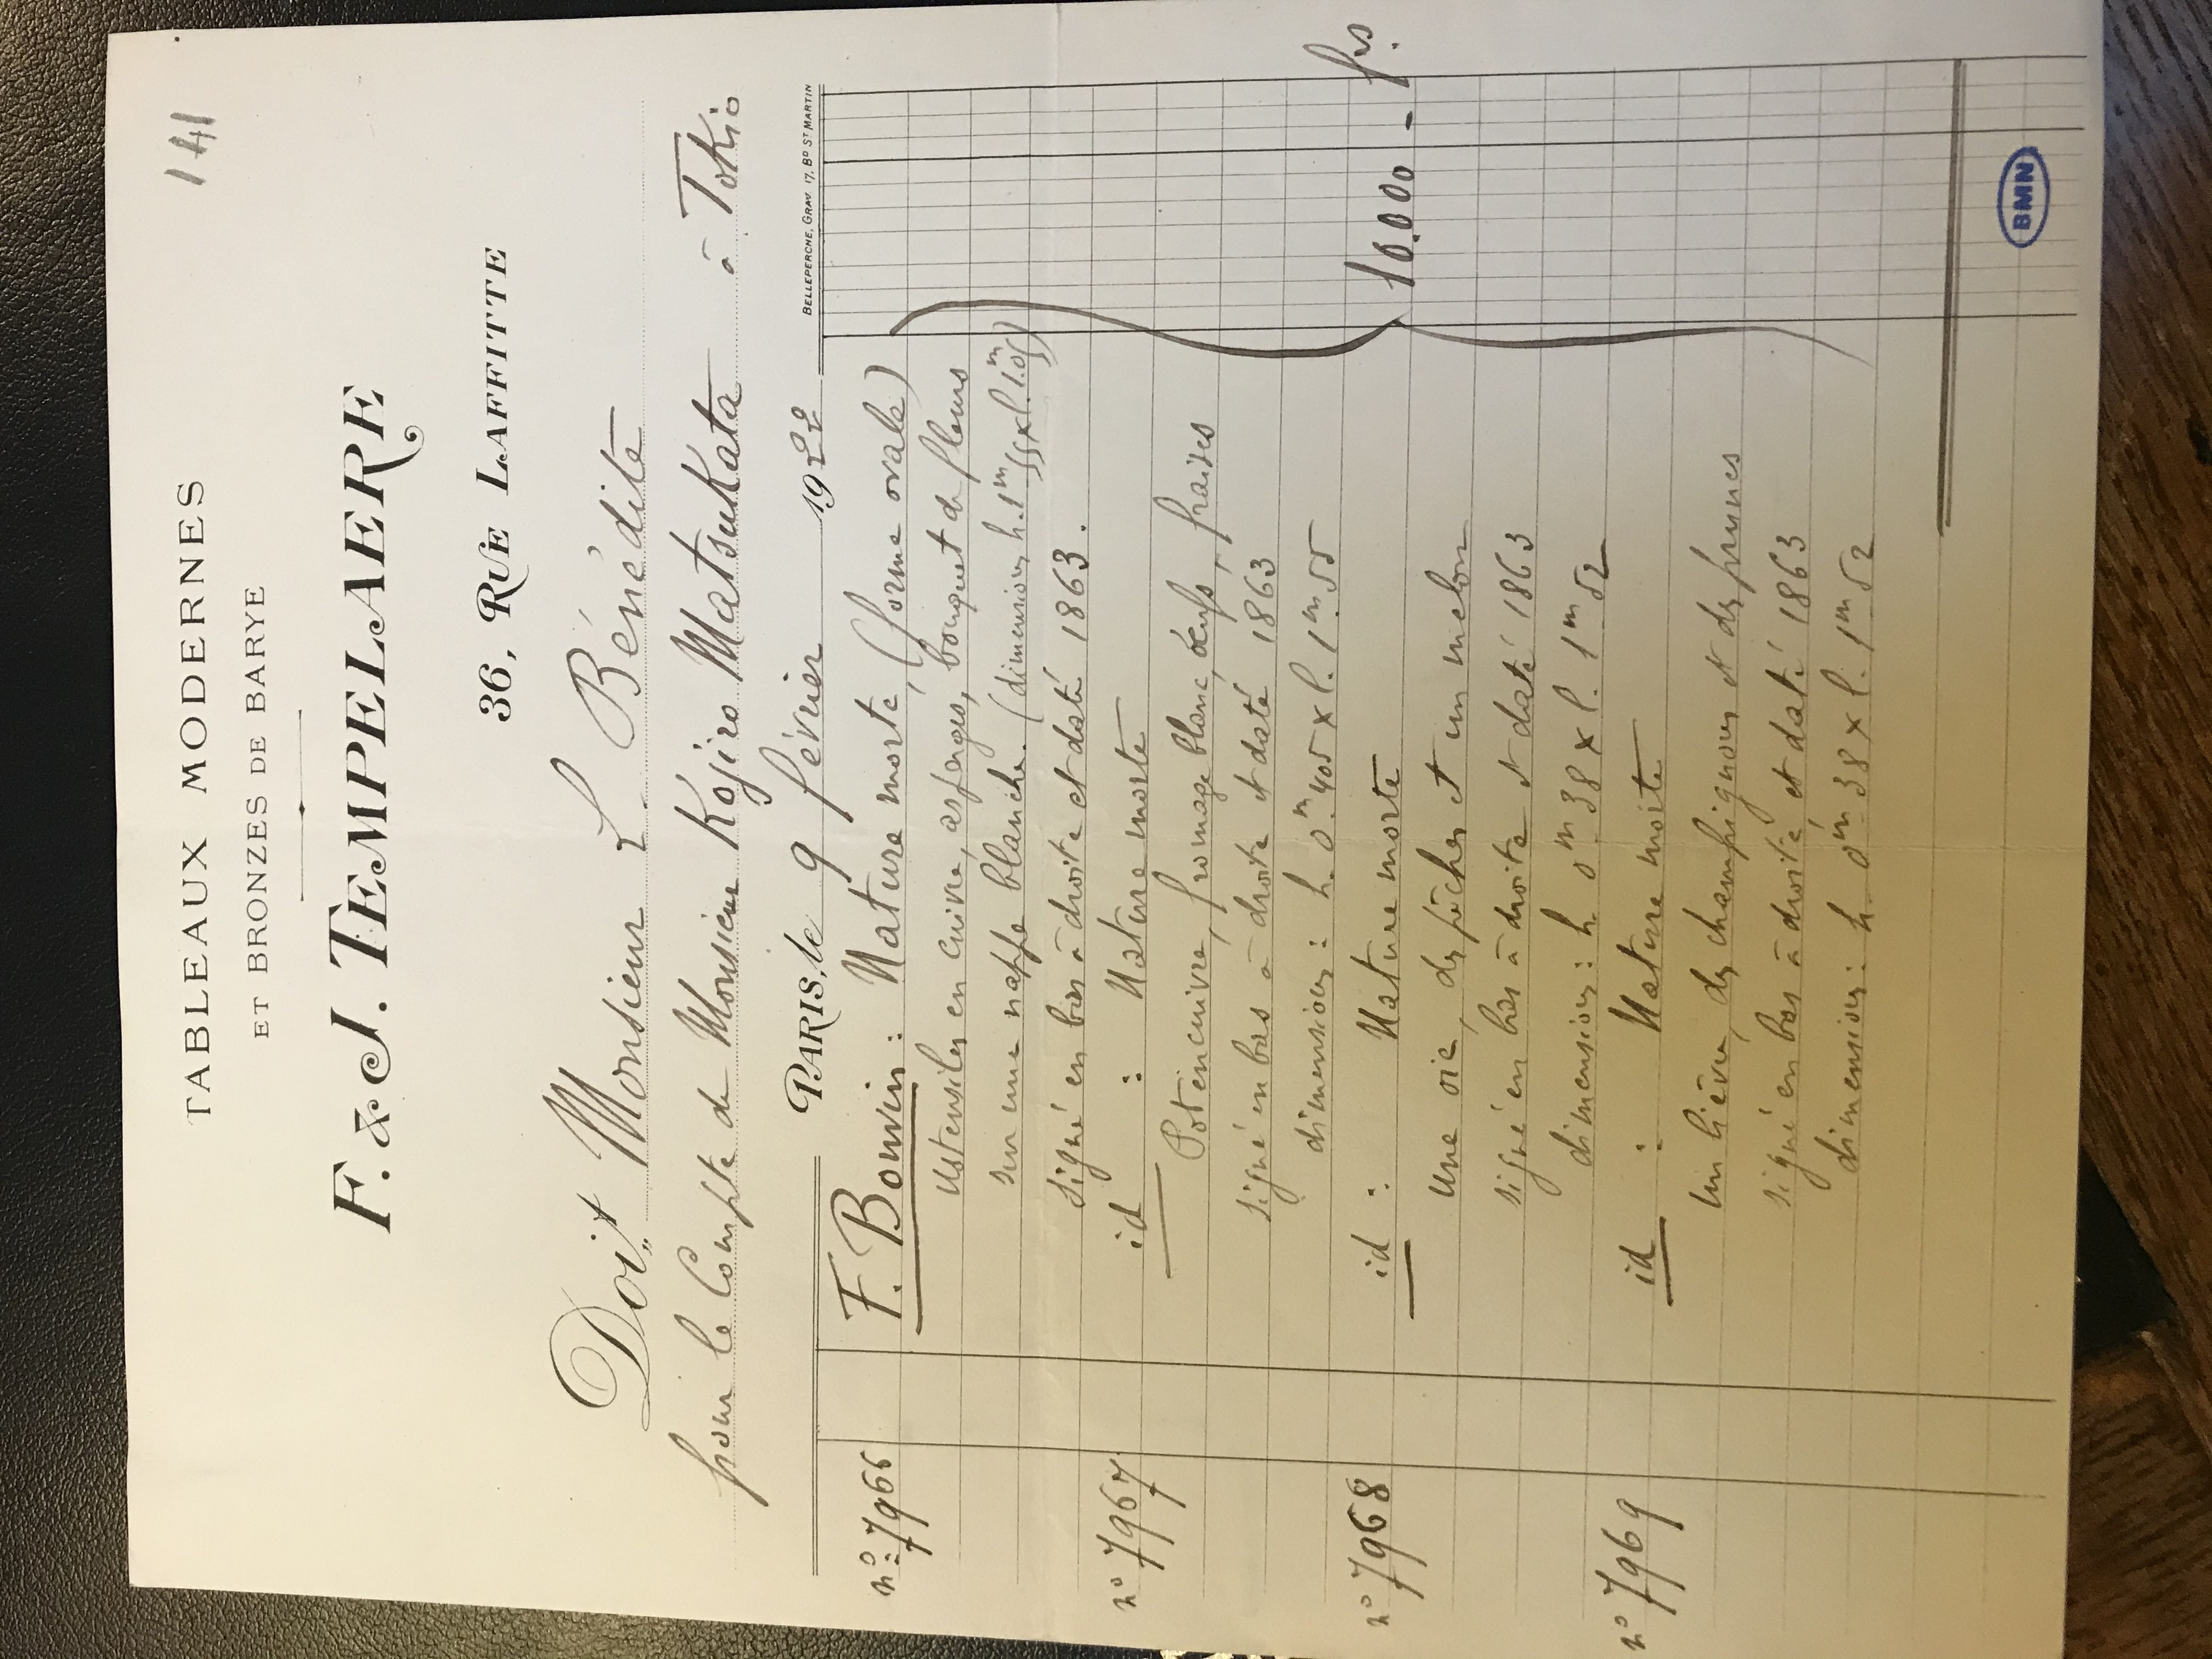 141
TABLEAUX MODERNES
ET BRONZES DE BARYE
F. & J. TEMPELAERE
36, RUE LAFFITTE
Doit Monsieur L. Bénédite
pour le Compte de Monsieur Kojiro Matsukata à Tokio
PARIS, le 9 février 1922
BELLEPERCHE, GRAV. 17, BD ST MARTIN
no 7966 F. Bonvin : Nature morte, (forme ovale)
Ustensiles en cuivre, asperges, bouquet de fleurs
sur une nappe blanche. (dimensions h. 1m55 x l. 1m05)
signé en bas à droite et daté 1863.
no 7967 id : Nature morte
Pot en cuivre, fromage blanc, œufs, fraises
signé en bas à droite et daté 1863
dimensions : h. 0m 405 x l. 1m.55
no 7968 id : Nature morte
10.000 - frs.
une oie, des pêches et un melon
signé en bas à droite et daté 1863
dimensions : h. 0m 38 x l. 1m 52
no 7969 id : Nature morte
un lièvre, des champignons et des prunes
signé en bas à droite et daté 1863
dimensions : h. 0m 38 x l. 1m 52
BMN